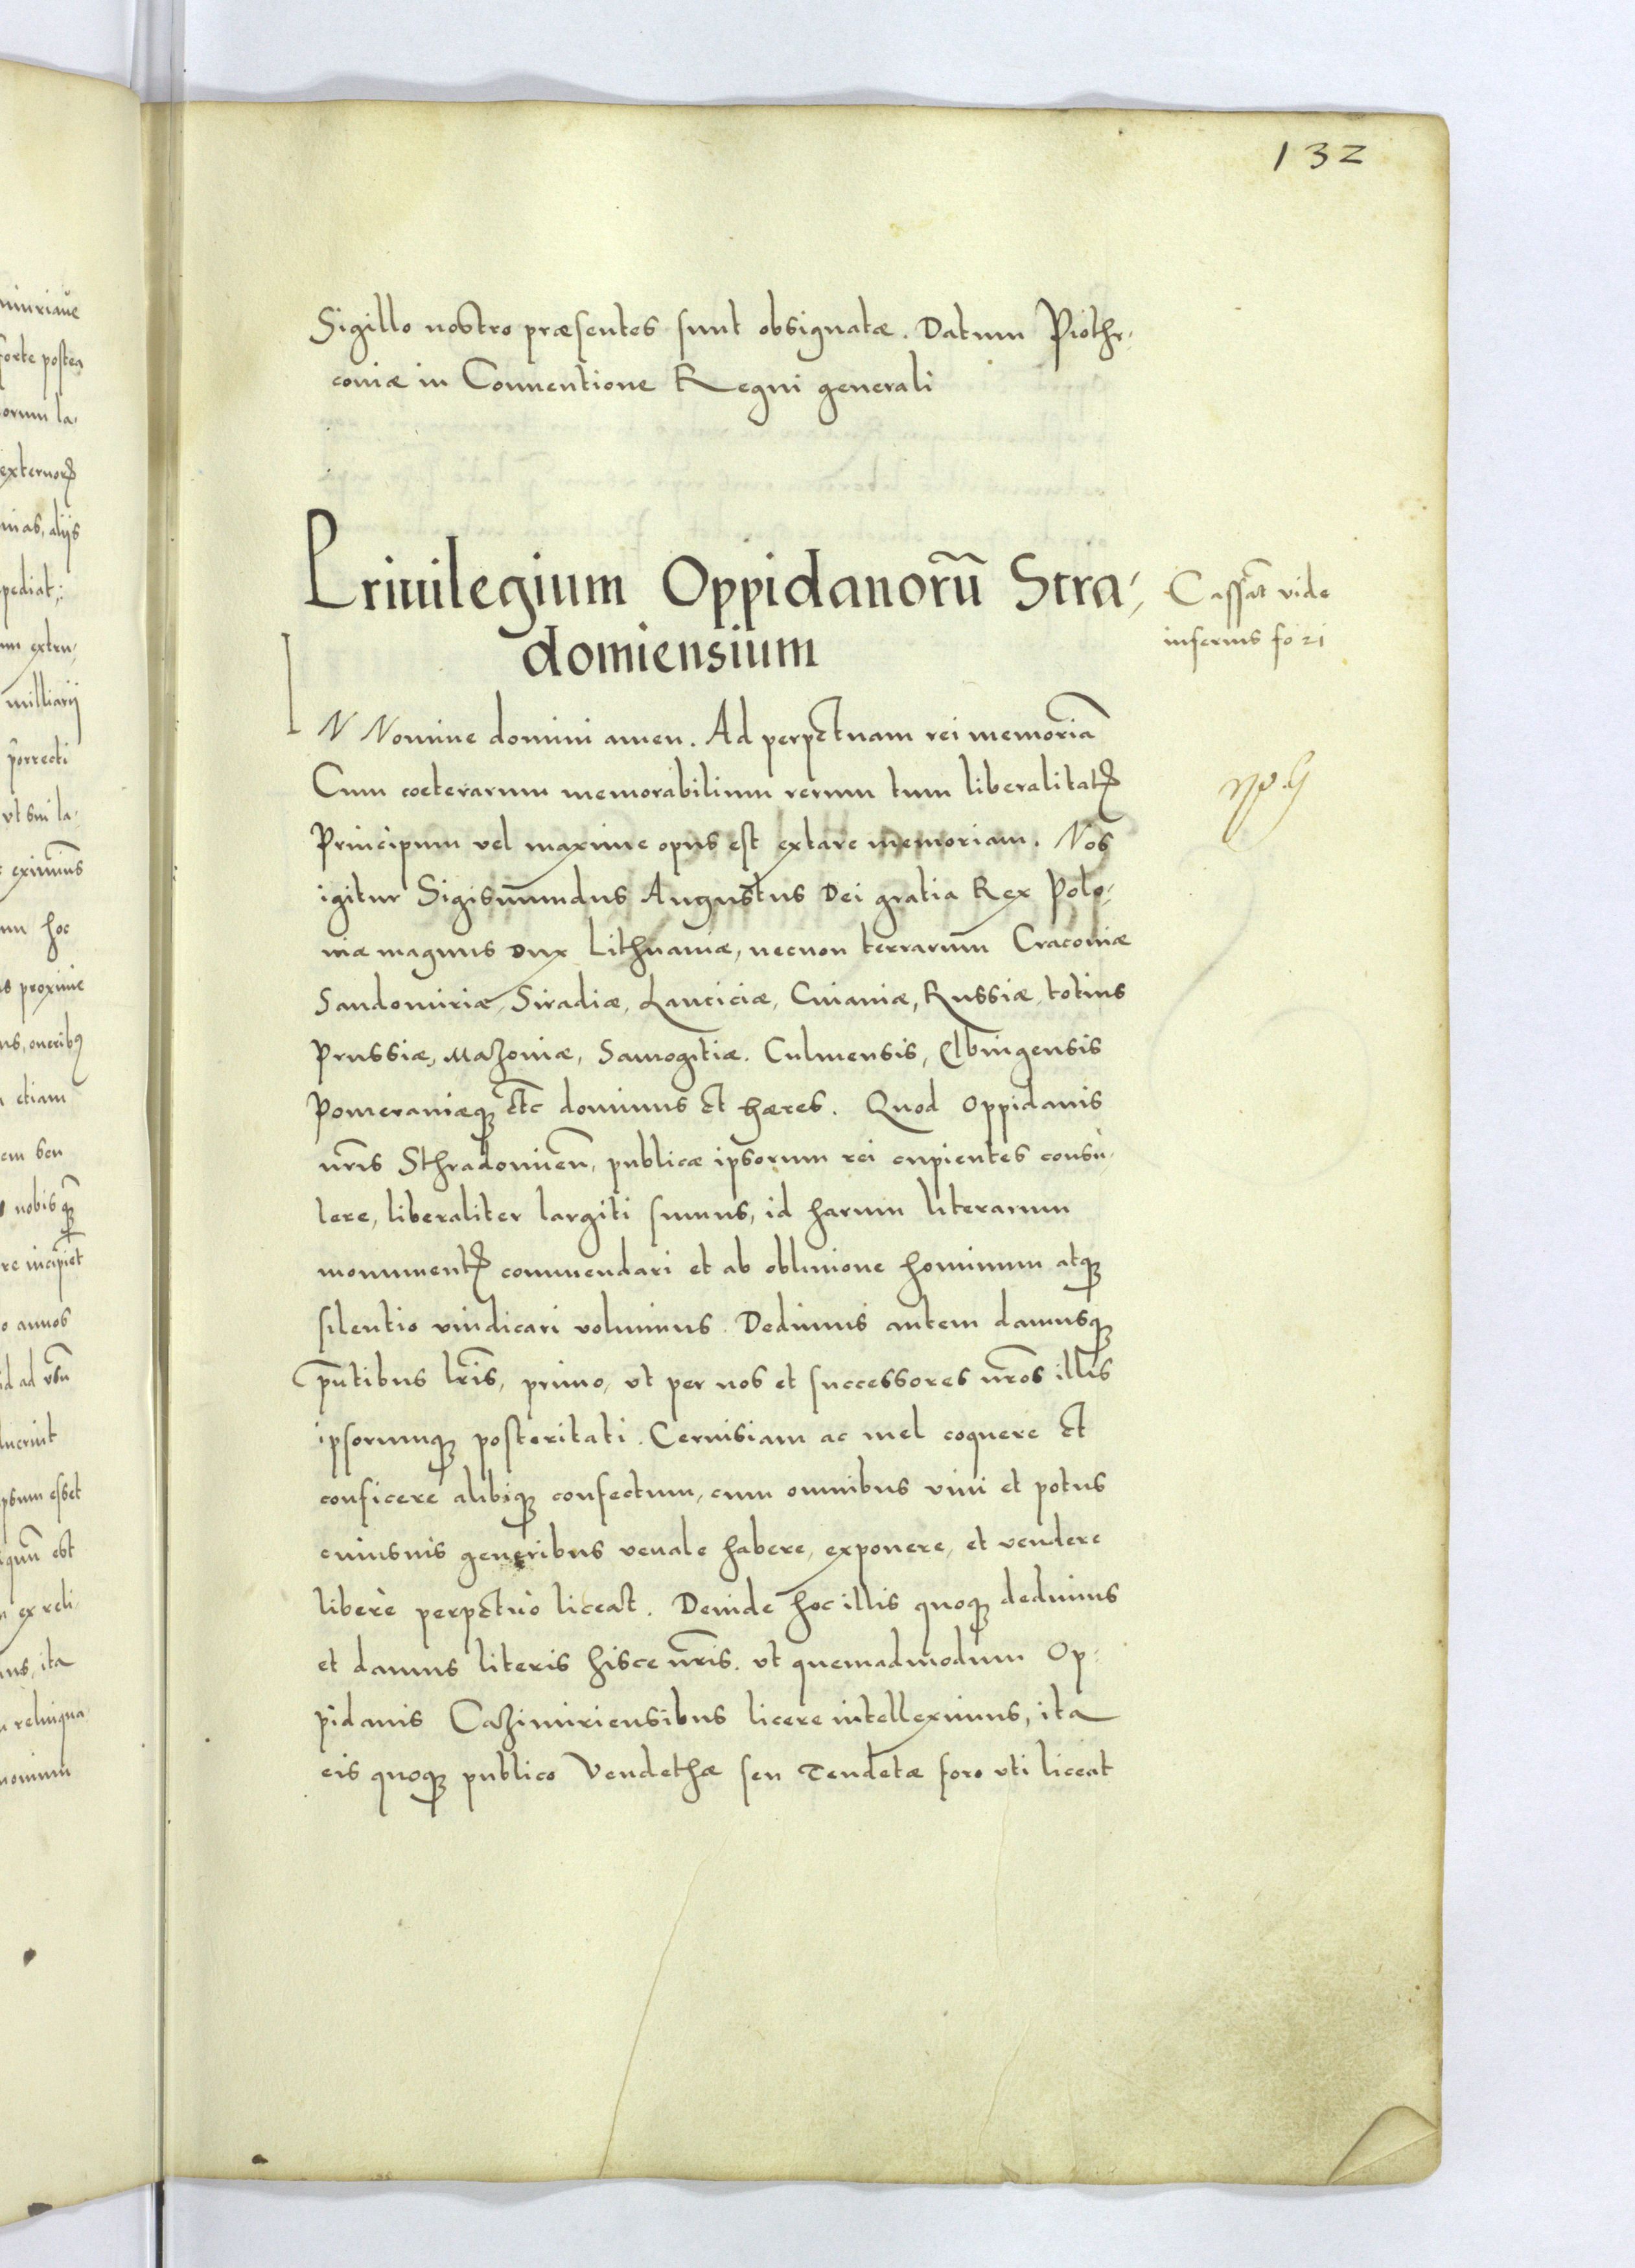 132
Sigillo nostro præsentes sunt obsignatæ. Datum Piothr-
couiæ in Conuentione Regni generali
Priuilegium Oppidanorū Stra-
domiensium
Cassat̄ vide
inferius fo 21
IN Nomine domini amen. Ad perpetuam rei memoriā
Cum cœterarum memorabilium rerum tum liberalitatꝭ
Principum vel maxime opus est extare memoriam. Nos
igitur Sigismundus Augustus Dei gratia Rex Polo-
niæ magnus Dux Lithuaniæ, necnon terrarum Cracouiæ
Sandomiriæ, Siradiæ, Lanciciæ, Cuiauiæ, Russiæ, totius
Prussiæ, Mazouiæ, Samogitiæ. Culmensis, Elbingensis
Pomeraniæqꝫ etc̄ dominus et hæres. Quod Oppidanis
nr̄is Sthradomien̄, publicæ ipsorum rei cupientes consu-
lere, liberaliter largiti sumus, id harum literarum
monumentꝭ commendari et ab obliuione hominum atqꝫ
silentio vindicari volumus. Dedimus autem damusqꝫ
pn̄tibus lr̄is, primo, vt per nos et successores nr̄os illis
ipsorumqꝫ posteritati. Ceruisiam ac mel coquere et
conficere alibiqꝫ confectum, cum omnibus vini et potus
cuiusuis generibus venale habere, exponere, et vendere
liberè perpetuò liceat. Deinde hoc illis quoqꝫ dedimus
et damus literis hisce nr̄is. vt quemadmodum Op-
pidanis Cazimiriensibus licere intelleximus, ita
eis quoqꝫ publico Vendethæ seu Tendetæ foro vti liceat